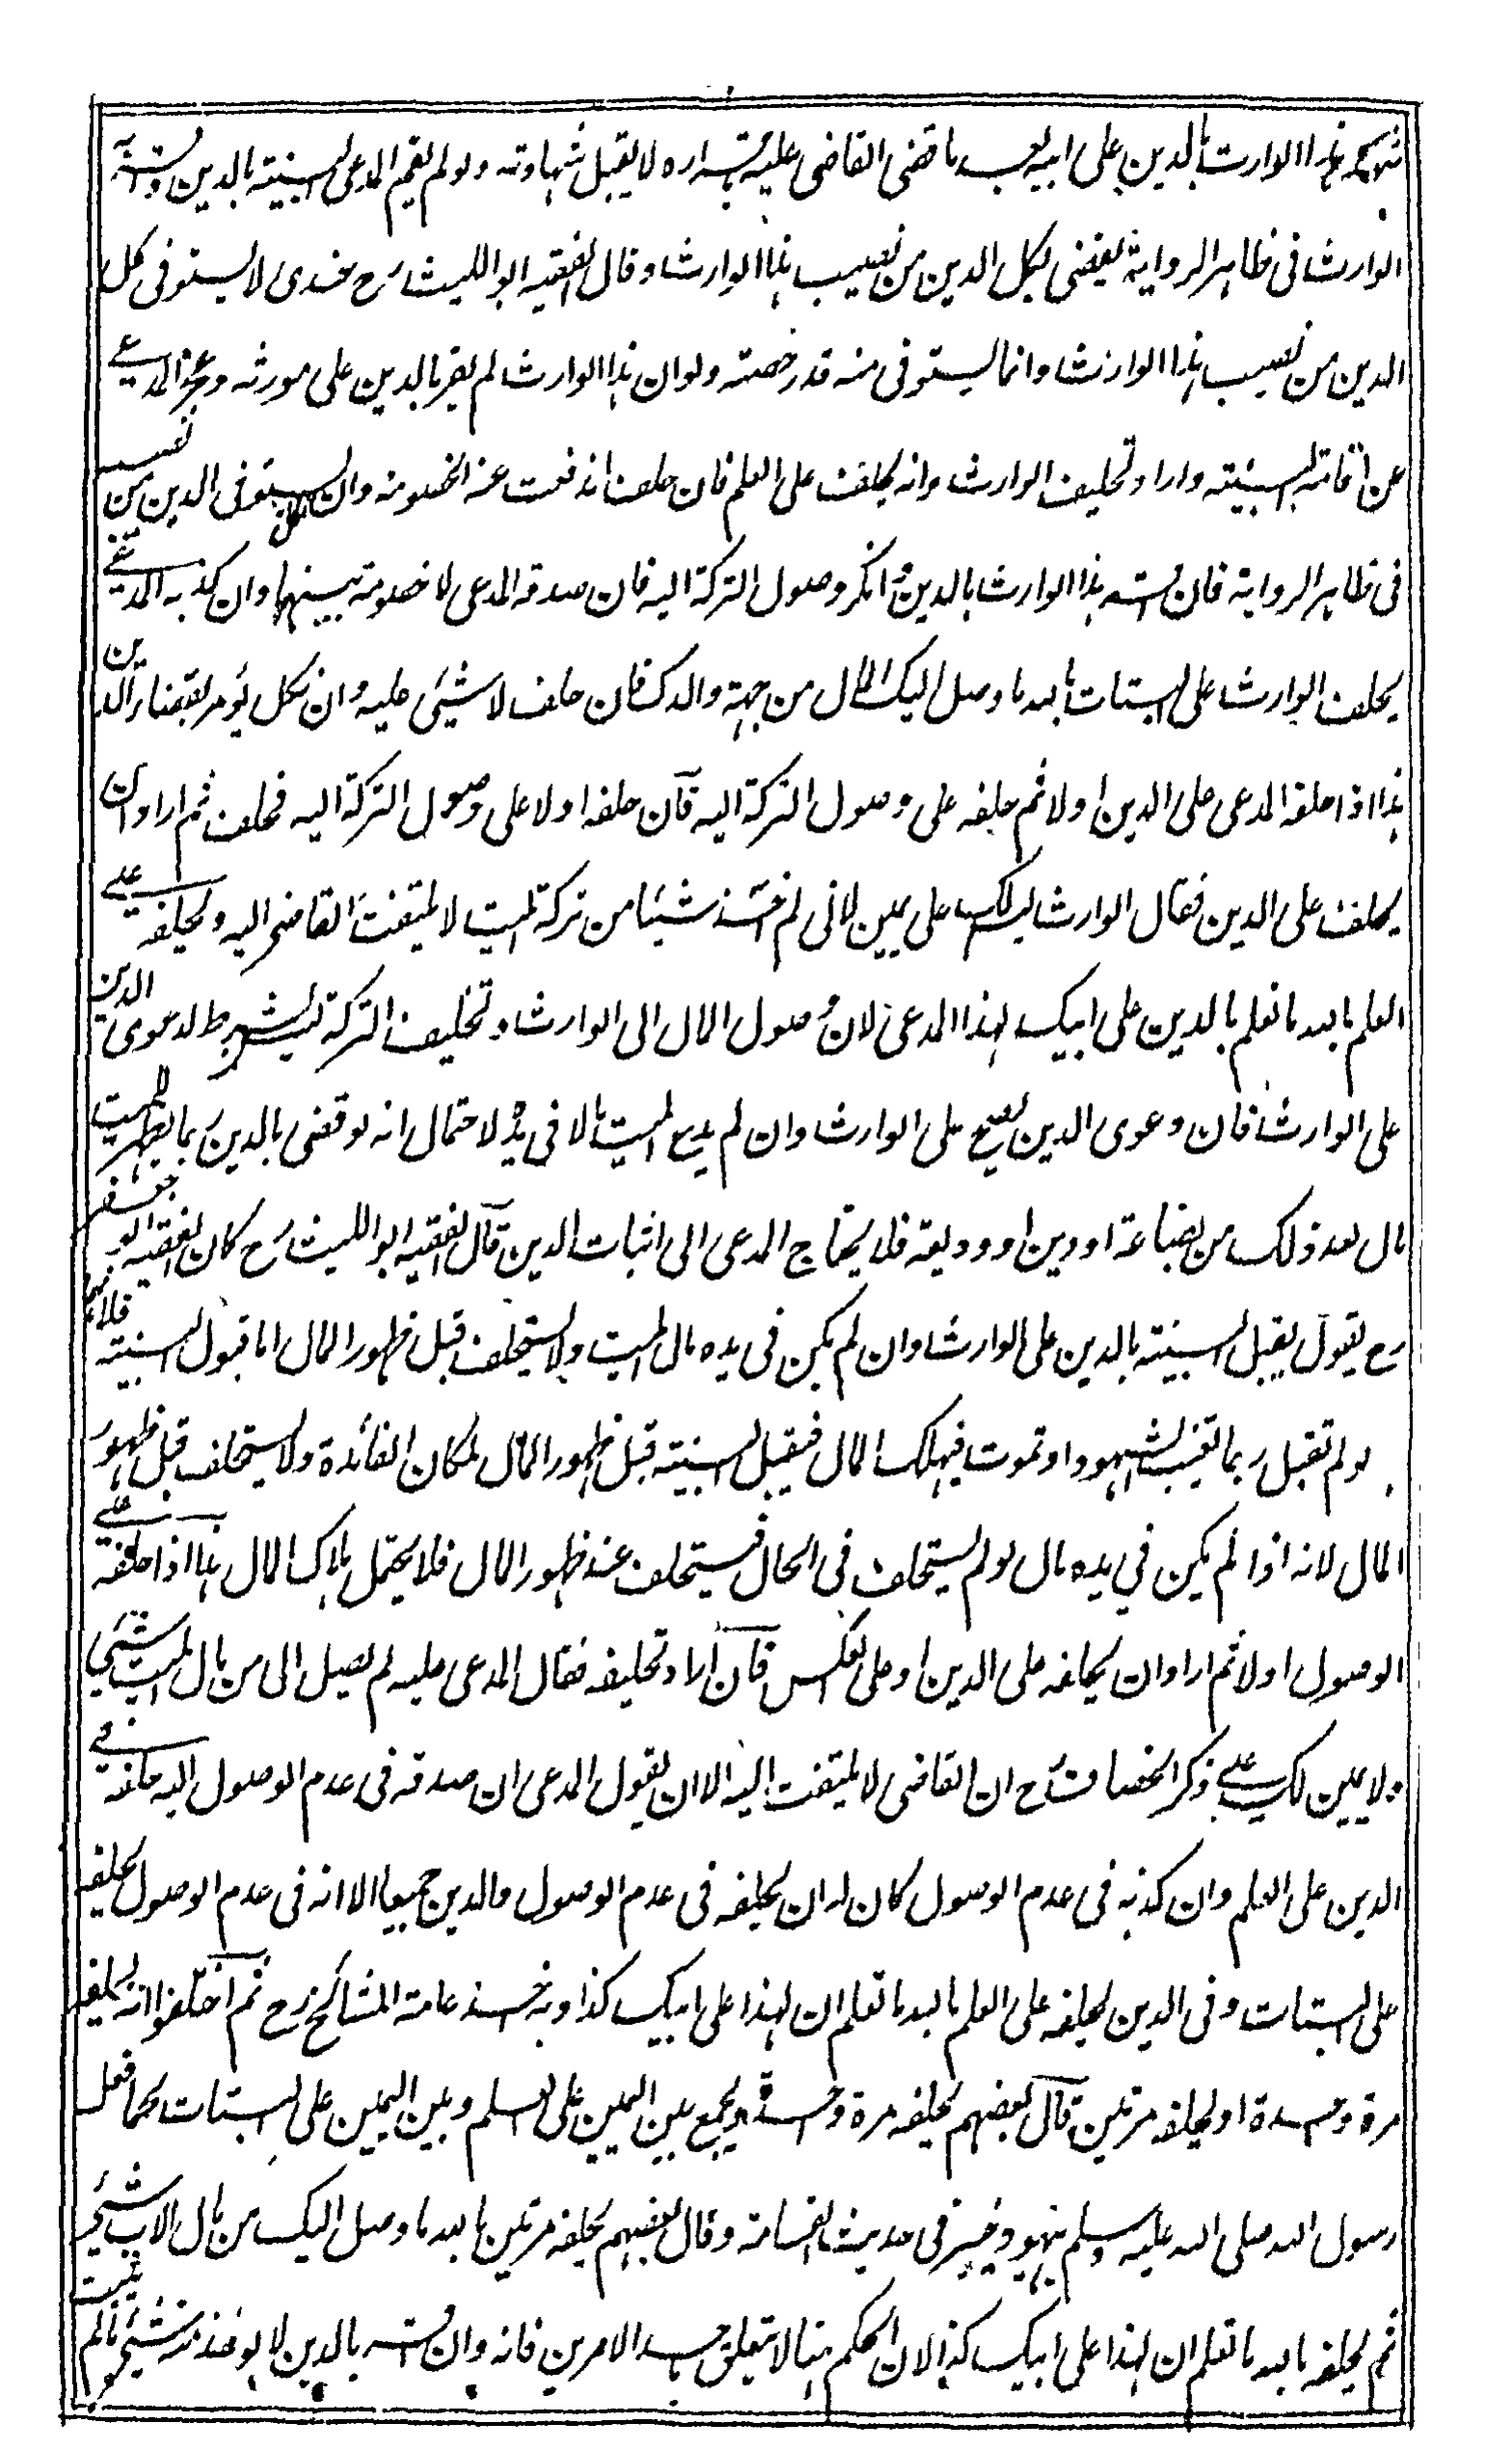 شهد هذا الوارث بالدين على ابيه بعد ما قضى القاضى عليه باقراره لا يقبل شهادته ولو لم يقم المدعى البينة بالدين واقر
الوارث فى ظاهر الرواية يقضى بكل الدين من نصيب هذا الوارث وقال الفقيه ابو الليث رح عندى لا يستوفى كل
الدين من نصيب هذا الوارث وانما يستوفى منه قدر حصته ولو ان هذا الوارث لم يقر بالدين على مورثه وعجز المدعى
عن اقامة البينة واراد تحليف الوارث وانه يحلف على العلم فان حلف اندفعت عنه الخصومة وان نكل يستوفى الدين من نصيبه
فى ظاهر الرواية فان اقر هذا الوارث بالدين وانكر وصول التركة اليه فان صدقه المدعى لا خصومة بينهما وان كذبه المدعى
يحلف الوارث على البتات بالله ما وصل اليك المال من جهة والدك فان حلف لا شيئ عليه وان نكل يؤمر بقضاء الدين
هذا اذا حلفه المدعى على الدين اولا ثم حلفه على وصول التركة اليه فان حلفه اولا على وصول التركة اليه فحلف ثم اراد ان
يحلف على الدين فقال الوارث ليس لك على يمين لانى لم آخذ شيئا من تركة الميت لا يلتفت القاضى اليه ويحلفه على
العلم بالله ما تعلم بالدين على ابيك لهذا المدعى لان وصول المال الى الوارث وتحليف التركة ليس بشرط لدعوى الدين
على الوارث فان دعوى الدين يصح على الوارث وان لم يدع الميت مالا فى يده لاحتمال انه لو قضى بالدين ربما يظهر للميت
مال بعد ذلك من بضاعة او دين او وديعة فلا يحتاج المدعى الى اثبات الدين قال الفقيه ابو الليث رح كان الفقيه ابو جعفر
رح يقول يقبل البينة بالدين على الوارث وان لم يكن فى يده مال الميت ولا يستحلف قبل ظهور المال اما قبول البينة فلانها
لو لم تقبل ربما تغيب الشهود او تموت فيهلك المال فيقبل البينة قبل ظهور المال لمكان الفائدة ولا يستحلف قبل ظهور
المال لانه اذا لم يكن في يده مال لو لم يستحلف فى الحال فيستحلف عند ظهور المال فلا يحتمل هلاك المال هذا اذا حلفه على
الوصول اولا ثم اراد ان يحلفه على الدين او على العكس فان اراد تحليفه فقال المدعى عليه لم يصل الى من مال الميت شيئ
ولا يمين لك على ذكر الخصاف رح ان القاضى لا يلتفت اليه الا ان يقول المدعى ان صدقه فى عدم الوصول اليه حلفه فى
الدين على العلم وان كذبه فى عدم الوصول كان له ان يحلفه فى عدم الوصول والدين جميعا الا انه فى عدم الوصول يحلفه
على البتات وفى الدين يحلفه على العلم بالله ما تعلم ان لهذا على ابيك كذا وبه اخذ عامة المشائخ رح ثم اختلفوا انه يحلفه
مرة واحدة او يحلفه مرتين قال بعضهم يحلفه مرة واحدة ويجمع بين اليمين على العلم وبين اليمين على البتات كما فعل
رسول الله صلى الله عليه وسلم بيهود خيبر فى حديث القسامة وقال بعضهم يحلفه مرتين بالله ما وصل اليك من مال الاب شيئ
ثم يحلفه بالله ما تعلم ان لهذا على ابيك كذا لان الحكم هنا لا يتعلق باحد الامرين فانه وان اقر بالدين لا يوخذ منه شيئ ما لم يثبت